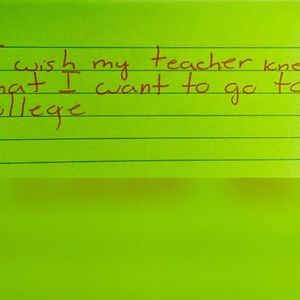 I wish my teacher kne
hat I want to go to
ollege